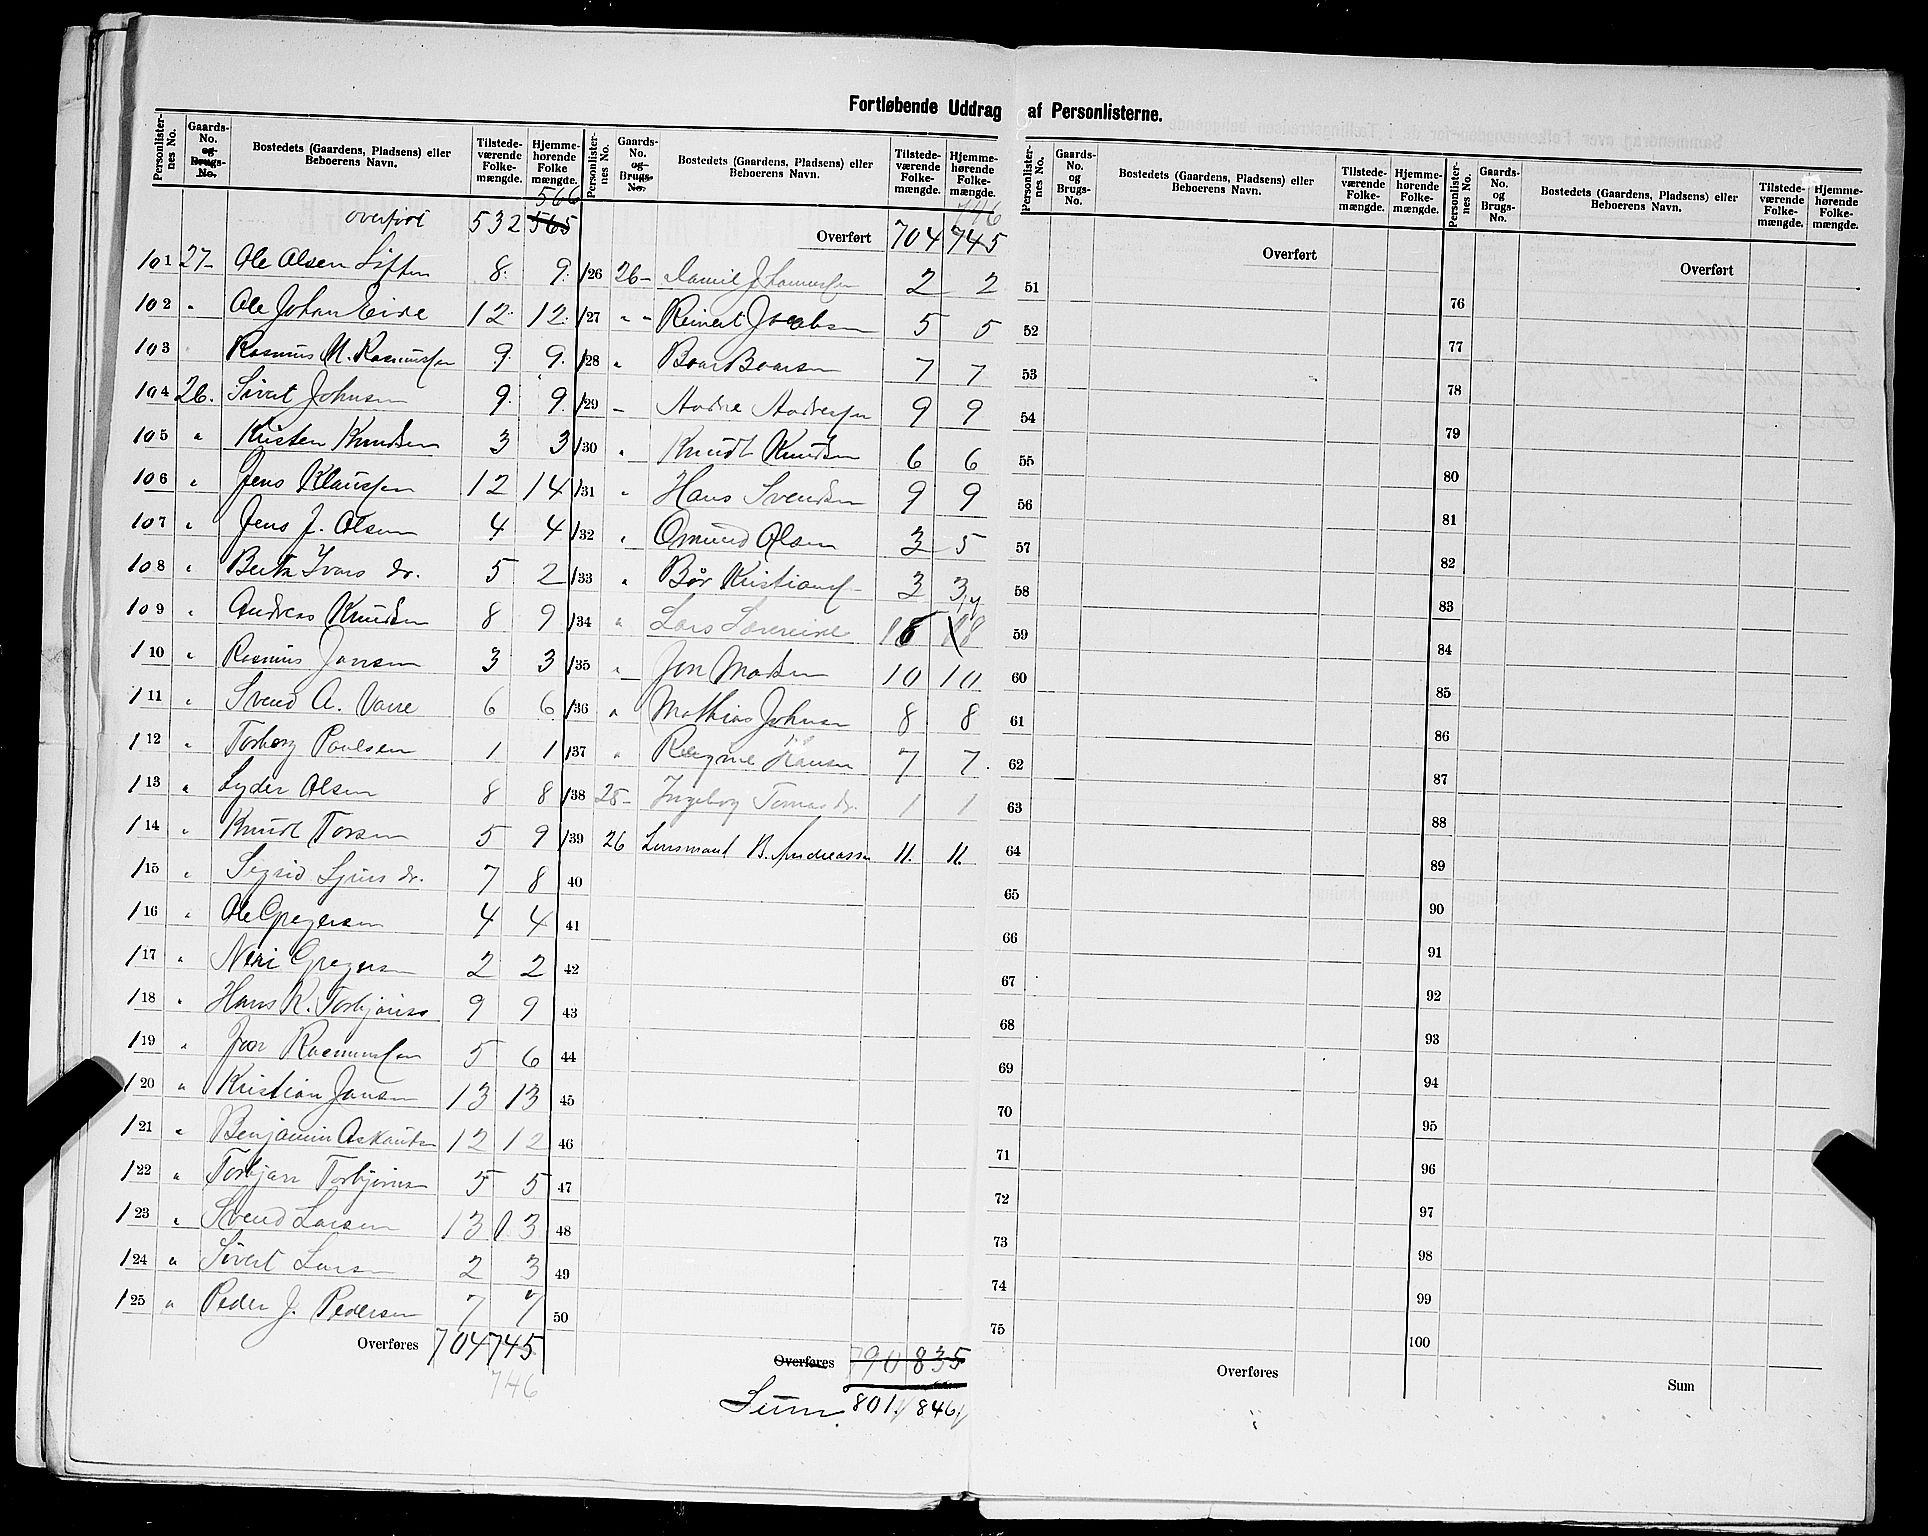 Fortløbende Uddrag af Personlisterne.
Personlister-nes No. Gaards-No. og Brugs-No. Bostedets (Gaardens, Pladsens) eller Beboerens Navn. Tilstede-værende Folke-mængde. Hjemme-hørende Folke mængde.
overført 532 565 566
101 27- Ole Olsen 8. 9.
102 " Ole Johan Eide 12. 12.
103 Rasmus M. Rasmussen 9. 9.
104 26. Sivert Johnsen 9. 9.
105 " Kristen Knudsen 3 3
106 " Jens Klaussen 12 14
107 " Jens J. Olsen 4 4
108 " Berta Ivars dr. 5 2
109 " Andreas Knudsen 8 9
110 " Rasmus Jansen 3 3
111 " Svend A. 6 6
112 " Torborg Paulsen 1 1
113 " Lyder Olsen 8 8
114 " Knudt Torsen 5 9
115 " Sigrid dr. 7 8
116 " Ole Gregersen 4 4
117 " Neri Gregersen 2 2
118 " Hans K. Torbjørns 9 9
119 " Rasmussen 5 6
120 " Kristian Jansen 13 13
121 " Benjamin 12 12
122 " Torbjørn Torbjørnsen 5 5
123 " Svend Larsen 13 13
124 " Sivert Larsen 2 3
125 " Peder J. Pedersen 7 7
Overføres 704 745
746
Personlister-nes No. Gaards-No. og Brugs-No. Bostedets (Gaardens, Pladsens) eller Beboerens Navn. Tilstede-værende Folke-mængde. Hjemme-hørende Folke-mængde.
746
Overført 704 745
126 26- Daniel Johannessen 2 2
127 " " Reinert Jacobsen 5 5
128 " Boar Boarsen 7 7
129 - Andre Andresen 9 9
130 " Knudt Knudsen 6 6
131 " Hans Svendsen 9 9
132 " Omund Olsen 3 5
133 " Bår 3 3
134 " Lars
135 " Jon Madsen 10 10
136 " Mathias Johnsen 8 8
137 " Hansen 7 7.
138 Ingeborg dr. 1 1
139 26 B. Andreassen 11. 11.
40
41
42
43
44
45
46
47
48
49
50
Overføres 790 835
Sum 801. 846.
Personlister-nes No. Gaards-No. og Brugs-No. Bostedets (Gaardens, Pladsens) eller Beboerens Navn. Tilstede-værende Folke-mængde. Hjemme-hørende Folke-mængde.
Overført
51
52
53
54
55
56
57
58
59
60
61
62
63
64
65
66
67
68
69
70
71
72
73
74
75
Overføres
Personlister-nes No. Gaards-No. og Brugs-No. Bostedets (Gaardens, Pladsens) eller Beboerens Navn. Tilstede-værende Folke-mængde. Hjemme-hørende Folke-mængde.
Overført
76
77
78
79
80
81
82
83
84
85
86
87
88
89
90
91
92
93
94
95
96
97
98
99
100
Sum